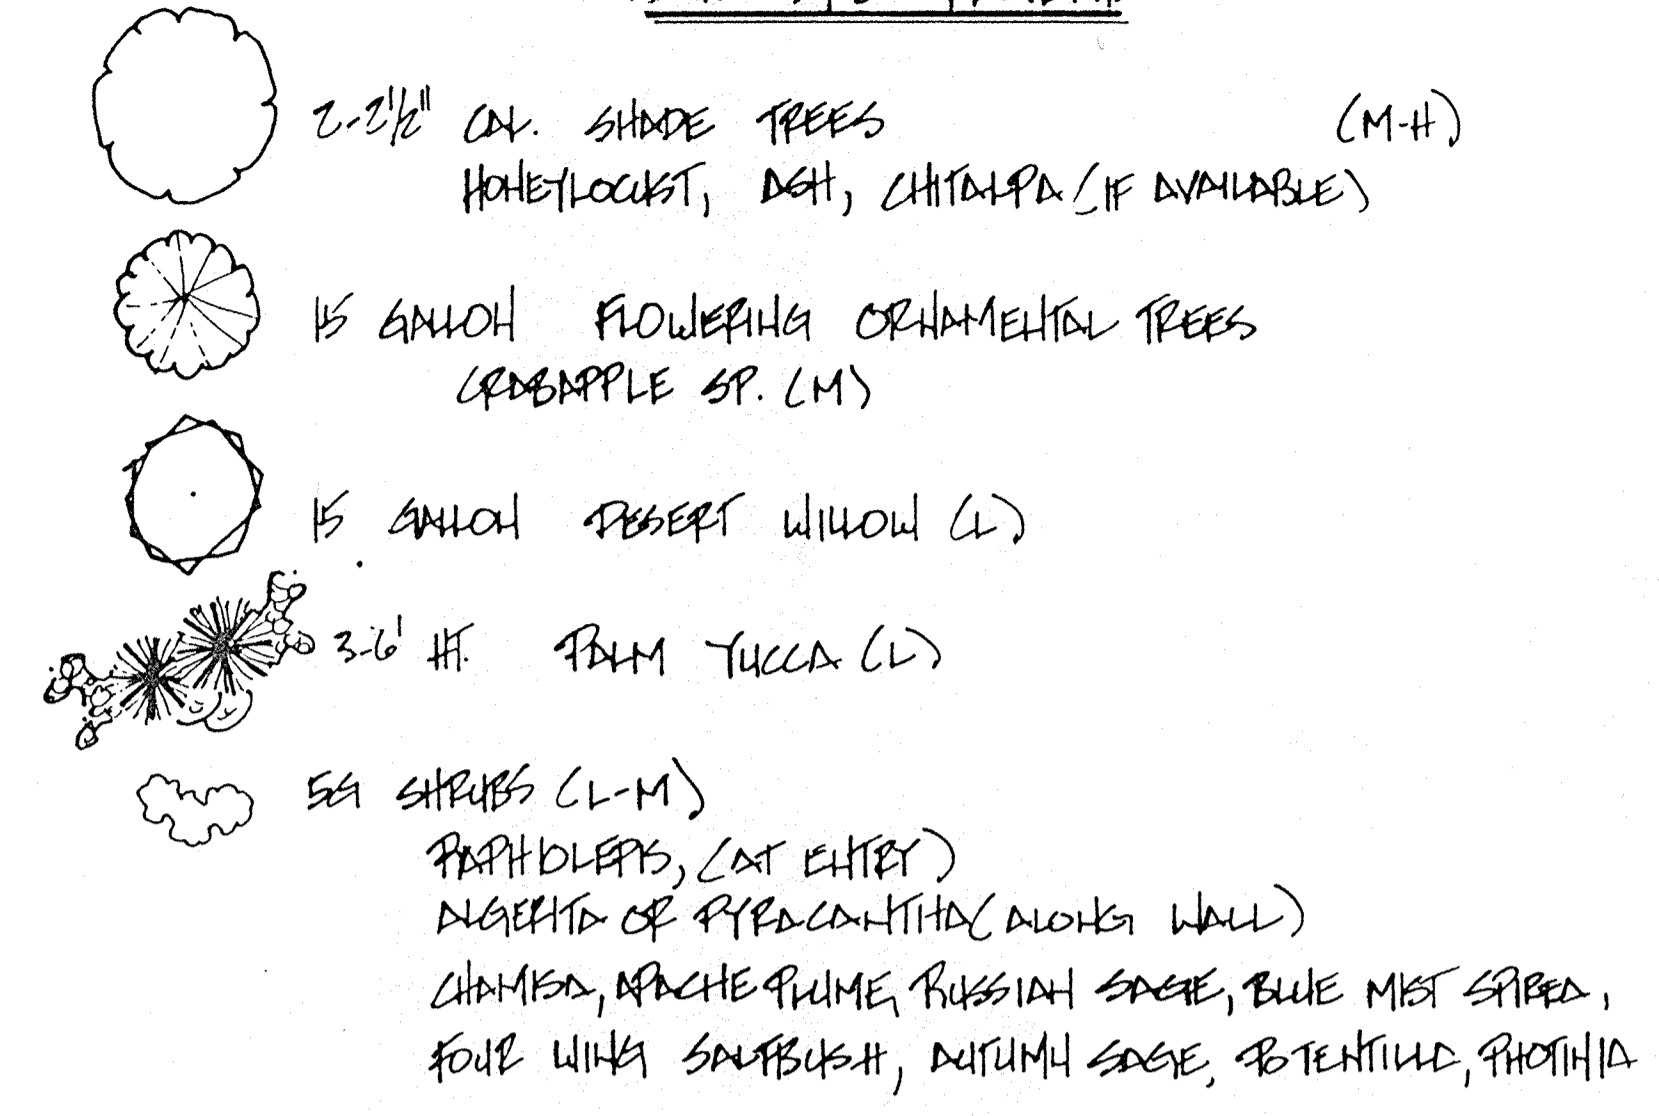 2-2 1/2" CAL. SHADE TREES (M-H)
HONEYLOCUST, ASH, CHITALPA (IF AVAILABLE)
15 GALLON FLOWERING ORNAMENTAL TREES
CRABAPPLE SP. (M)
15 GALLON DESERT WILLOW (L)
3-6' HT. PALM YUCCA (L)
5G SHRUBS (L-M)
RAPHIOLEPIS, (AT ENTRY)
ALGERITA OR PYRACANTHA (ALONG WALL)
CHAMISA, APACHE PLUME, RUSSIAN SAGE, BLUE MIST SPIREA,
FOUR WING SALTBUSH, AUTUMN SAGE, POTENTILLA, PHOTINIA